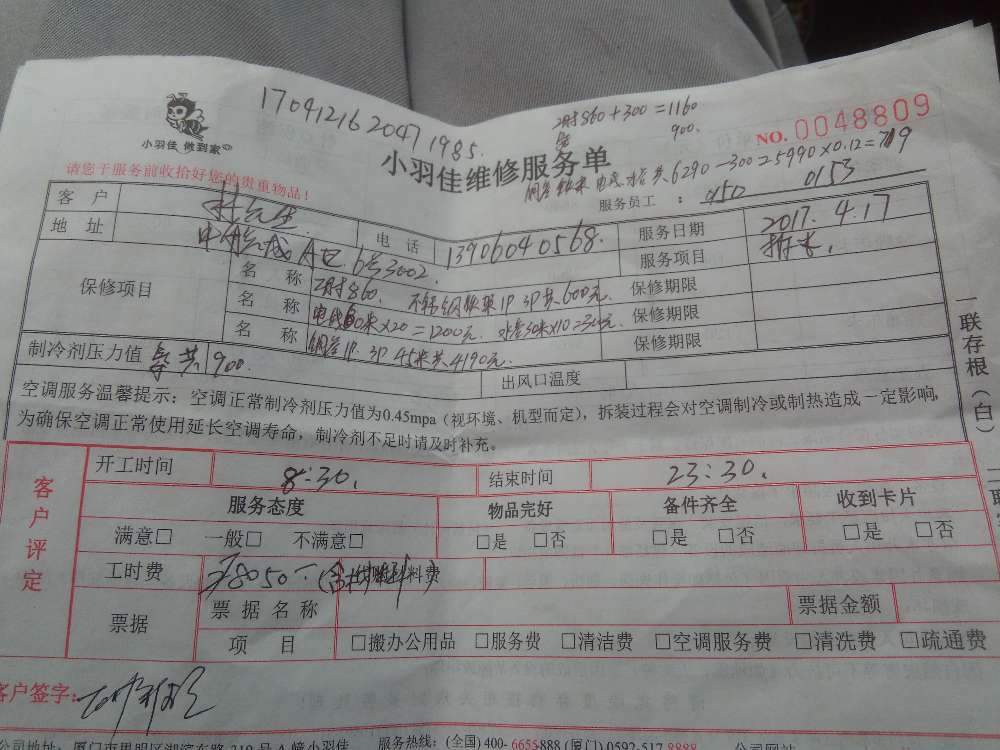 17041216 2047 1985.
2对860+300=1160
900.
NO.0048809
小羽佳 做到家
小羽佳维修服务单
6290-300=5990×0.12=719
请您于服务前收拾好您的贵重物品！
服务员工： 0153
客 户
电 话 13906040568. 服务日期 2017.4.17
地 址 A区6号3002 服务项目
保修项目
名 称 2对860. 不锈钢软联1P 3P共600元. 保修期限
名 称 电线60米×20=1200元. 水管 保修期限
名 称 铜管1P.3P 45米共4190元. 保修期限
制冷剂压力值 共900. 出风口温度
空调服务温馨提示：空调正常制冷剂压力值为0.45mpa（视环境、机型而定），拆装过程会对空调制冷或制热造成一定影响，
为确保空调正常使用延长空调寿命，制冷剂不足时请及时补充。
一联存根（白）
客户评定
开工时间 8:30. 结束时间 23:30.
服务态度 物品完好 备件齐全 收到卡片
满意□ 一般□ 不满意□ □是 □否 □是 □否 □是 □否
工时费 8050 料费
票据 票据名称 票据金额
项 目 □搬办公用品 □服务费 □清洁费 □空调服务费 □清洗费 □疏通费
客户签字：
公司地址：厦门市思明区湖滨东路319号A幢小羽佳 服务热线：(全国) 400-6655888 (厦门) 0592-517 8888 公司网站